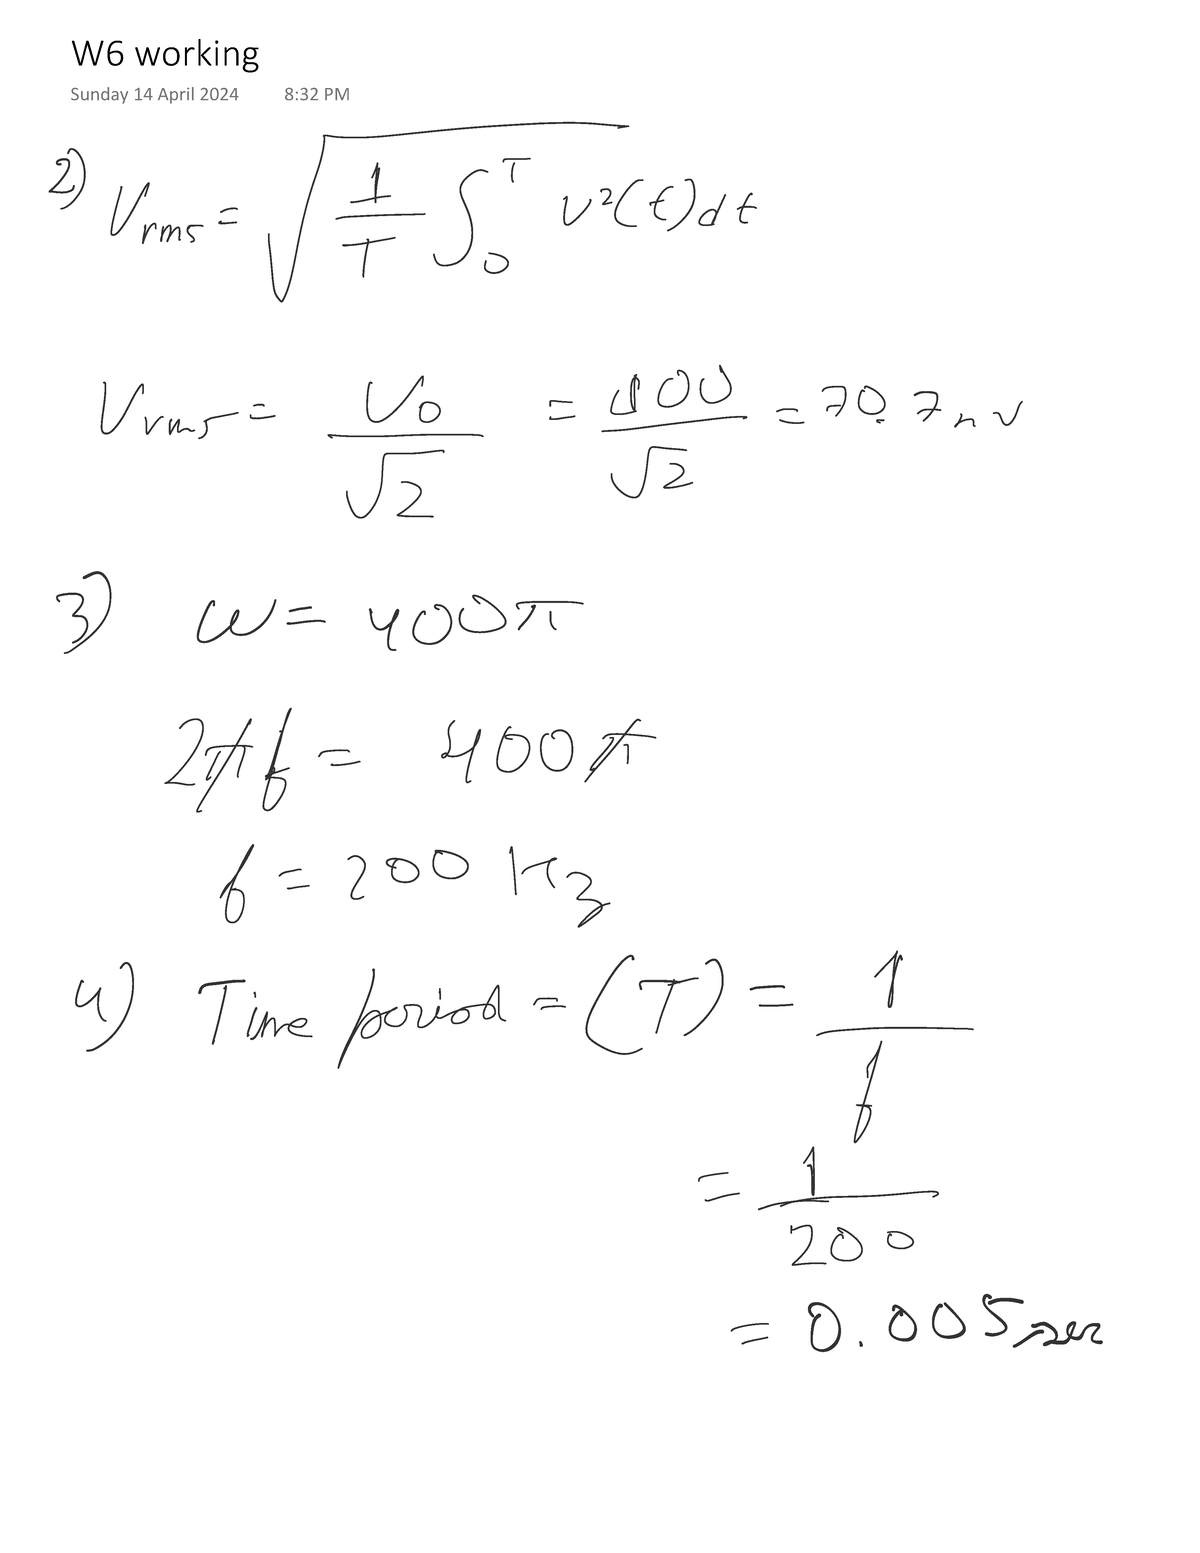 W6 working
Sunday 14 April 2024 8:32 PM
2) Vrms = √(1/T ∫₀ᵀ v²(t)dt
Vrms = V₀/√2 = 100/√2 = 70.7 nv
3) ω = 400π
2πf = 400π
f = 200 Hz
4) Time period = (T) = 1/f
= 1/200
= 0.005 sec